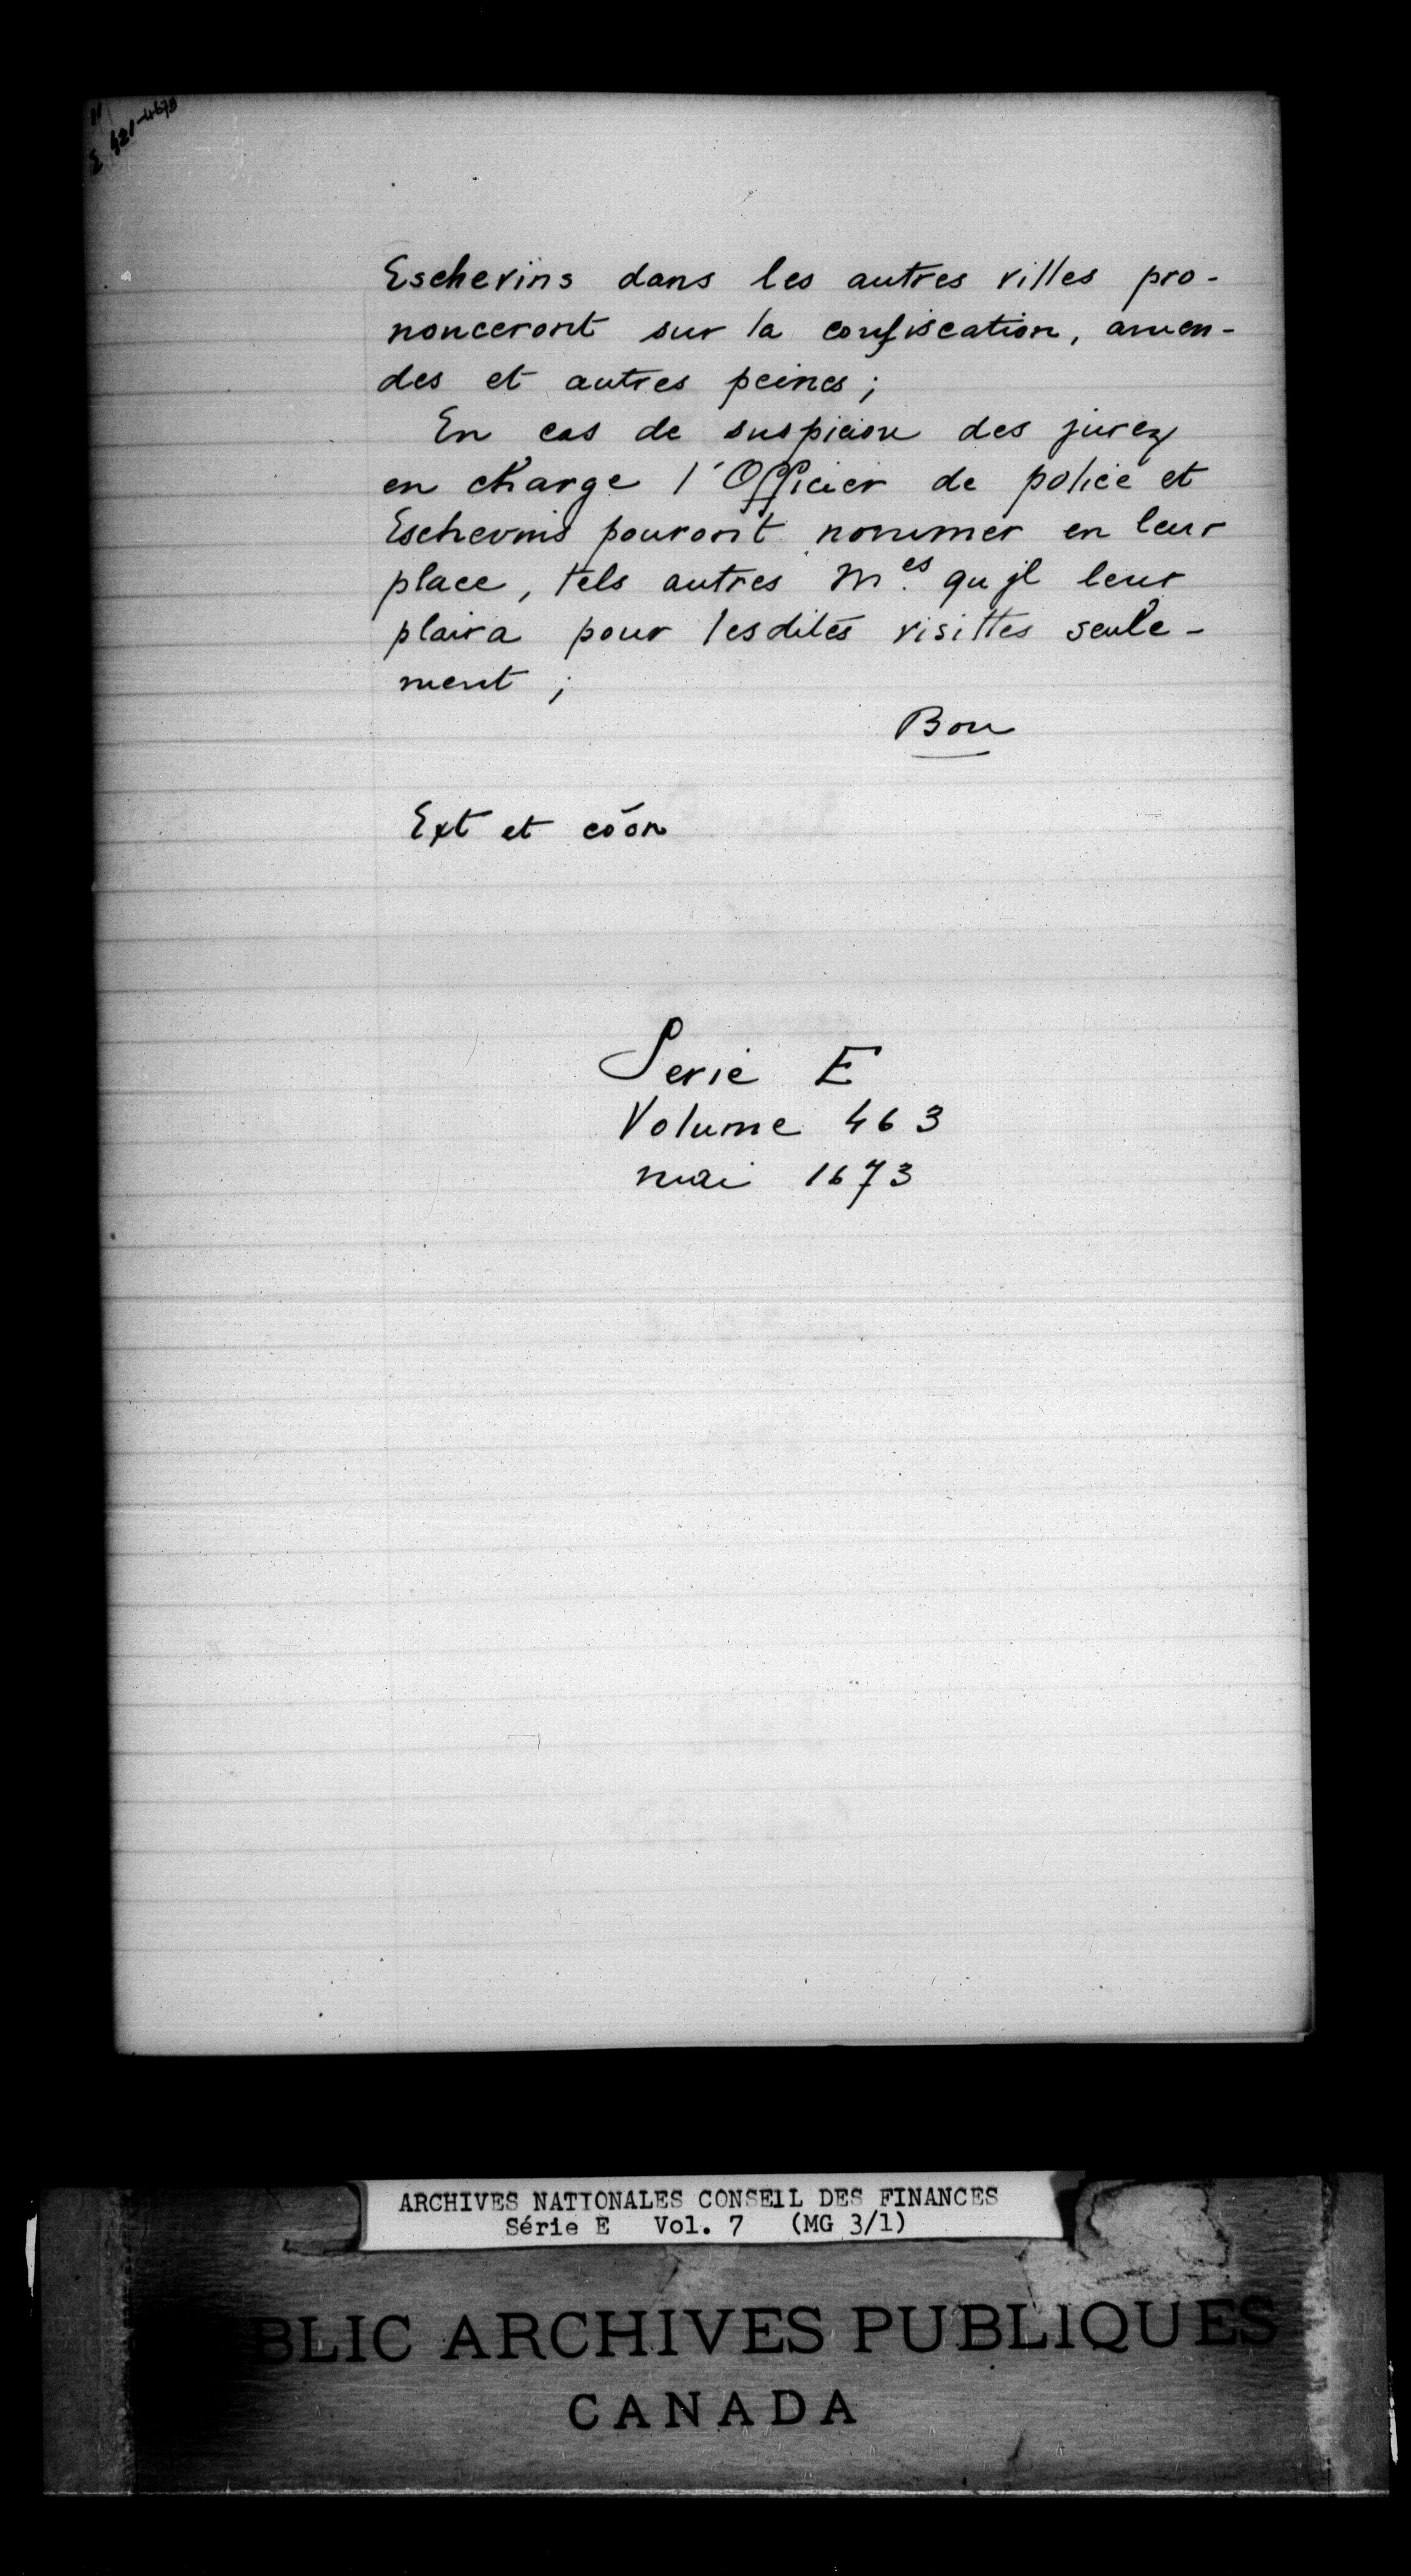 Eschevins dans les autres villes pro-
nonceront sur la confiscation, amen-
des et autres peines;
En cas de suspicion des jurez
en charge l'Officier de police et
Eschevins pouront nommer en leur
place, tels autres Mes. qu'jl leur
plaira pour lesdites visittes seule-
ment;
Bon
Ext et coon
Serie E
Volume 463
mai 1673
ARCHIVES NATIONALES CONSEIL DES FINANCES
Série E Vol. 7 (MG 3/1)
BLIC ARCHIVES PUBLIQUES
CANADA